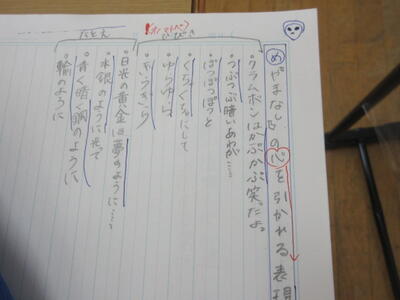 め やまなしの心を引かれる表現
・クラムボンはかぷかぷ笑ったよ。
・つぶつぶ暗いあわが…
・ぽつぽつぽつと
・くちゃくちゃにして
・ゆらゆら
オノマトペ
ひびき
・日光の黄金は夢のように…
・水銀のように光って
・青く暗く鋼のように
・輪のように
たとえ